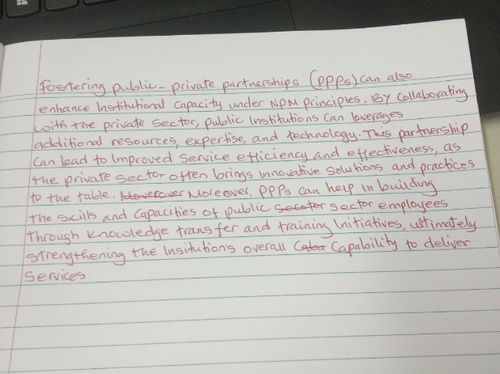 fostering public-private partnerships (PPPs) can also
enhance Institutional Capacity under NPM principles. By Collaborating
with the private Sector, public Institutions Can leverages
additional resources, expertise, and technology. This partnership
Can lead to Improved Service efficiency and effectiveness, as
the private Sector often brings Innovative Solutions and practices
to the table. Moreover. PPPs can help in building
the skills and Capacities of public sector employees
through Knowledge transfer and training Initiatives, ultimately
strengthening the Insitutions overall Capability to deliver
Services.